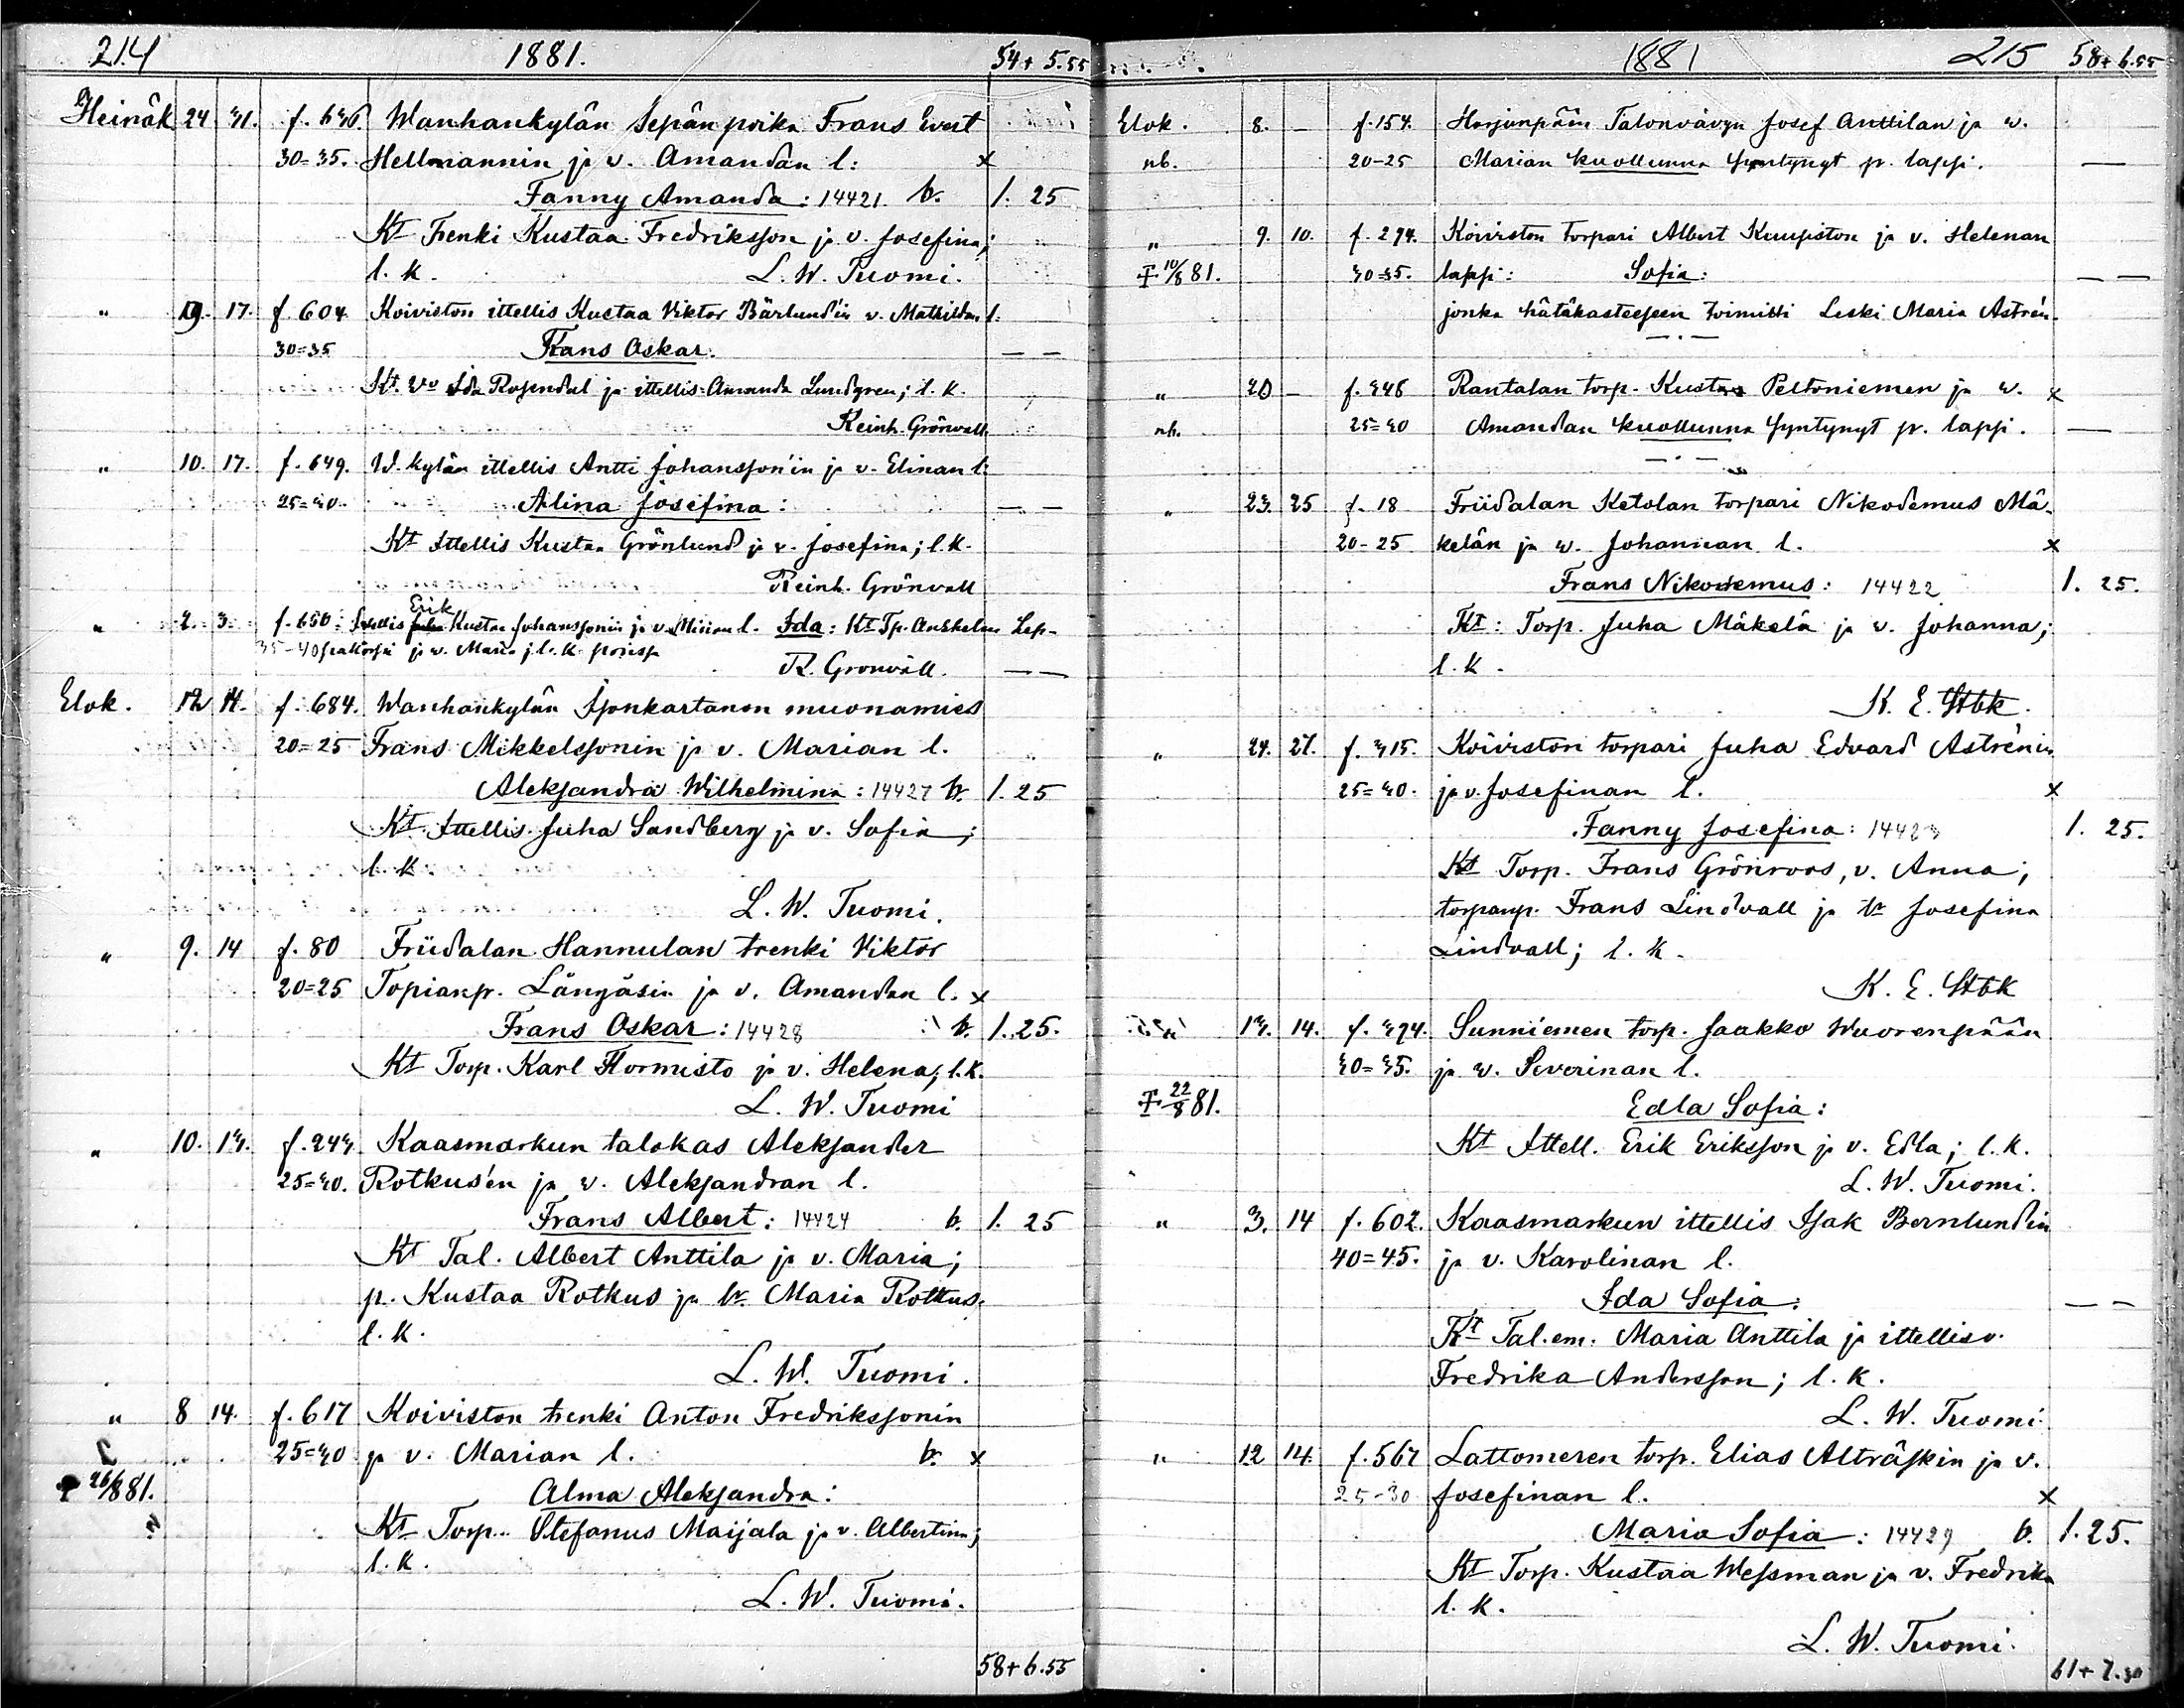 214 1881. 54+ 5.55
Heinäk. 24 31. f. 636. Wanhankylän Sepän poika Frans Evert
30=35. Hellmannin ja v. Amandan l: x
Fanny Amanda: 14421. b. 1. 25
Kt Trenki Kustaa Fredriksson ja v. Josefina;
l. k. L. W. Tuomi.
" 17. f 604. Koiviston ittellis Kustaa Viktor Bärlund'in v. Mathildan l.
30=35 Frans Oskar: — —
Kt. Ida Rosendal ja ittellis Amanda Lundgren; l. k.
Reinh. Grönvall.
" 10. 17. f. 649. W. kylän ittellis Antti Johansson'in ja v. Elinan l:
25=30. Alina Josefina: — —
Kt Ittellis Kustaa Grönlund ja v. Josefina; l. k.
Reinh. Grönvall
" 2. 3. f. 650. Ittellis Erik Kustaa Johanssonin ja v. Miinan l. Ida: Kt Tp. Anshelm Lep-
35-40 ja v. Maria; l. k. R. Gronvall. — —
Elok. 12 14. f. 684. Wanhankylän Isonkartanon muonamies
20=25 Frans Mikkelssonin ja v. Marian l.
Aleksandra Wilhelmina: 14427 b. 1. 25
Kt. Ittellis Juha Sandberg ja v. Sofia;
l. k.
L. W. Tuomi.
" 9. 14 f. 80 Friidalan Hannulan trenki Viktor
20=25 Topianp. Längäsin ja v. Amandan l. x
Frans Oskar: 14428 b. 1. 25.
Kt Torp. Karl Hormisto ja v. Helena; l. k.
L. W. Tuomi
" 10. 13. f. 243. Kaasmarkun talokas Aleksander
25=30. Rotkus'en ja v. Aleksandran l.
Frans Albert: 14424 b. 1. 25
Kt Tal. Albert Anttila ja v. Maria;
p. Kustaa Rotkus ja tr. Maria Rotkus.
l. k.
L. W. Tuomi.
" 8 14. f. 617 Koiviston trenki Anton Fredrikssonin
25=30 ja v. Marian l. b. x
26/8 81. Alma Aleksandra:
Kt Torp. Stefanus Maijala ja v. Albertina;
l. k.
L. W. Tuomi.
58+6.55
1881 215 58+6.55
Elok. 8. — f. 154. Harjunpään Talonvävyn Josef Anttilan ja w.
nb. 20-25 Marian kuollunna syntynyt p. lapsi. —
" 9. 10. f. 294. Koiviston torpari Albert Kuupiston ja v. Helenan
10/8 81. 30=35. lapsi: Sofia: — —
jonka hätäkasteeseen toimitti Leski Maria Astrén.
" 20 — f. 346 Rantalan torp. Kustaa Peltoniemen ja w. x
nb. 25=30 Amandan kuollunna syntynyt p. lapsi. —
" 23. 25 f. 18 Friidalan Ketolan torpari Nikodemus Mä-
20-25 kelän ja w. Johannan l. x
Frans Nikodemus: 14422 1. 25.
Kt: Torp. Juha Mäkelä ja w. Johanna;
l. k.
K. E. Stbk.
" 24. 27. f. 315. Koiviston torpari Juha Edvard Astrénin
25=30. ja v. Josefinan l. x
Fanny Josefina: 14423 1. 25.
Kt Torp. Frans Grönroos, v. Anna;
torpanp. Frans Lindvall ja tr Josefina
Lindvall; l. k.
K. E. Stbk
" 13. 14. f. 374. Sunniemen torp. Jaakko Wuorenpään
30=35. ja w. Severinan l.
22/8 81. Edla Sofia:
Kt Ittell. Erik Eriksson ja v. Edla; l. k.
L. W. Tuomi.
" 3. 14 f. 602. Kaasmarkun ittellis Isak Bernlundin
40=45. ja v. Karolinan l.
Ida Sofia: — —
Kt Tal. em. Maria Anttila ja ittellis v.
Fredrika Andersson; l. k.
L. W. Tuomi.
" 12 14. f. 567 Lattomeren torp. Elias Alträskin ja v.
25-30 Josefinan l. x
Maria Sofia: 14429 b. 1. 25.
Kt Torp. Kustaa Wessman ja v. Fredrika
l. k.
L. W. Tuomi.
61+7.30